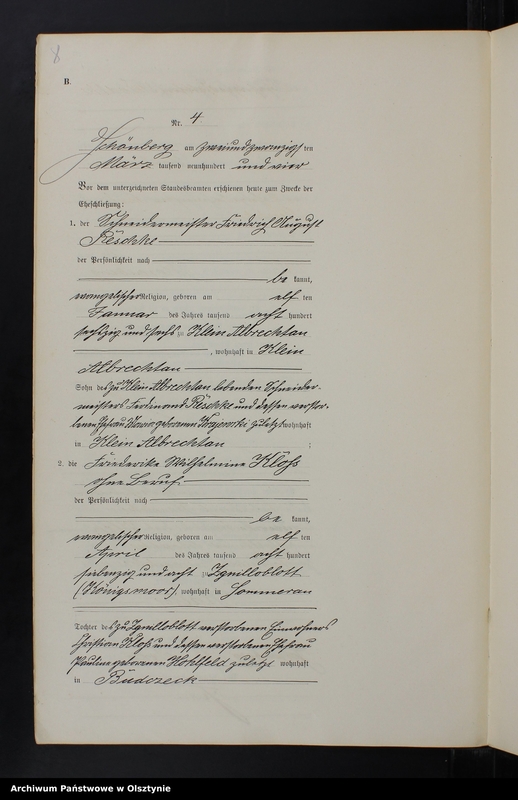 8
B.
Nr. 4
Schönberg am zweiundzwanzigsten
März tausend neunhundert und vier
Vor dem unterzeichneten Standesbeamten erschienen heute zum Zwecke der
Eheschließung:
1. der Schneidermeister Friedrich August
Reschke
der Persönlichkeit nach
be kannt,
evangelischer Religion, geboren am elf ten
Januar des Jahres tausend acht hundert
sechszig und sechs zu Klein Albrechtau
, wohnhaft in Klein
Albrechtau
Sohn des zu Klein Albrechtau lebenden Schneider-
meisters Ferdinand Reschke und dessen verstor-
benen Ehefrau geborenen zuletzt wohnhaft
in Klein Albrechtau ;
2. die Friederike Wilhelmine Kloss
ohne Beruf.
der Persönlichkeit nach
be kannt,
evangelischer Religion, geboren am elf ten
April des Jahres tausend acht hundert
siebenzig und acht zu Zgnilloblott
(Königsmoor), wohnhaft in Sommerau
Tochter des zu Zgnilloblott verstorbenen Einwohners
Christian Kloss und dessen verstorbenen Ehefrau
Pauline geborenen Hohlfeld zuletzt wohnhaft
in Budczeck
Archiwum Państwowe w Olsztynie